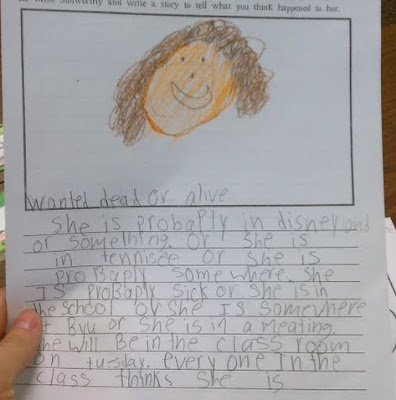 Miss Stolworthy and write a story to tell what you think happened to her.
Wanted dead or alive
She is probaply in disney land
or something. Or she is
in tennisee or she is
proBaply somewhere. She
IS probaply sick or she is in
the school or she Is somewhere
at Byu or she is in a meating.
she will Be in the class room
on tuesday. every one In the
class thinks she is